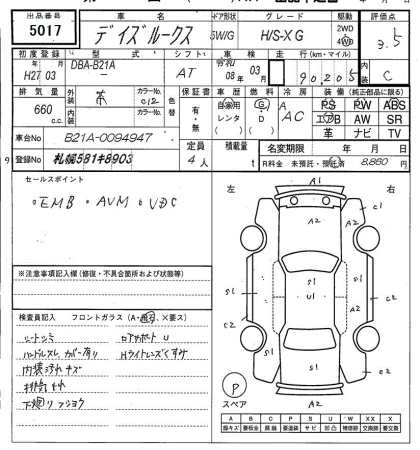 出品番号 車名 ドア形状 グレード 駆動 評価点
5017 デイズルークス 5W/G H/S-X G 2WD 4WD 3.5
初度登録 型式 シフト 車検 走行(km・マイル) 内装
H27年03月 DBA-B21A AT 08年03月 90,205 C
排気量 外装 カラーNo. 色替 保証書 車歴 燃料 冷房 装備(純正部品に限る)
660 c.c. 有・無 自家用 G A AC PS PW ABS
内装 カラーNo. レンタ D エアB AW SR
革 ナビ TV
車台No B21A-0094947 定員 積載量 名変期限 年 月 日
登録No 札幌581キ8903 4人 t R料金 未預託・預託済 8,860円
セールスポイント
・EMB ・AVM ・VDC
左 右
A1
A2 C1
A2
C2
S1 U1 S1
C2 C2
S1 S1
C2
S1
P
スペア A2
※注意事項記入欄(修復・不具合箇所および状態等)
検査員記入 フロントガラス(A・飛石、X要ス)
シートシミ ロアサポートU
ハンドルスレ カバー有り Hライトレンズくすみ
内装汚れキズ
下廻りフショク
A B C P S U W XX X
線キズ 要板金 腐蝕 要塗装 サビ 凹凸 補修跡 交換跡 要交換